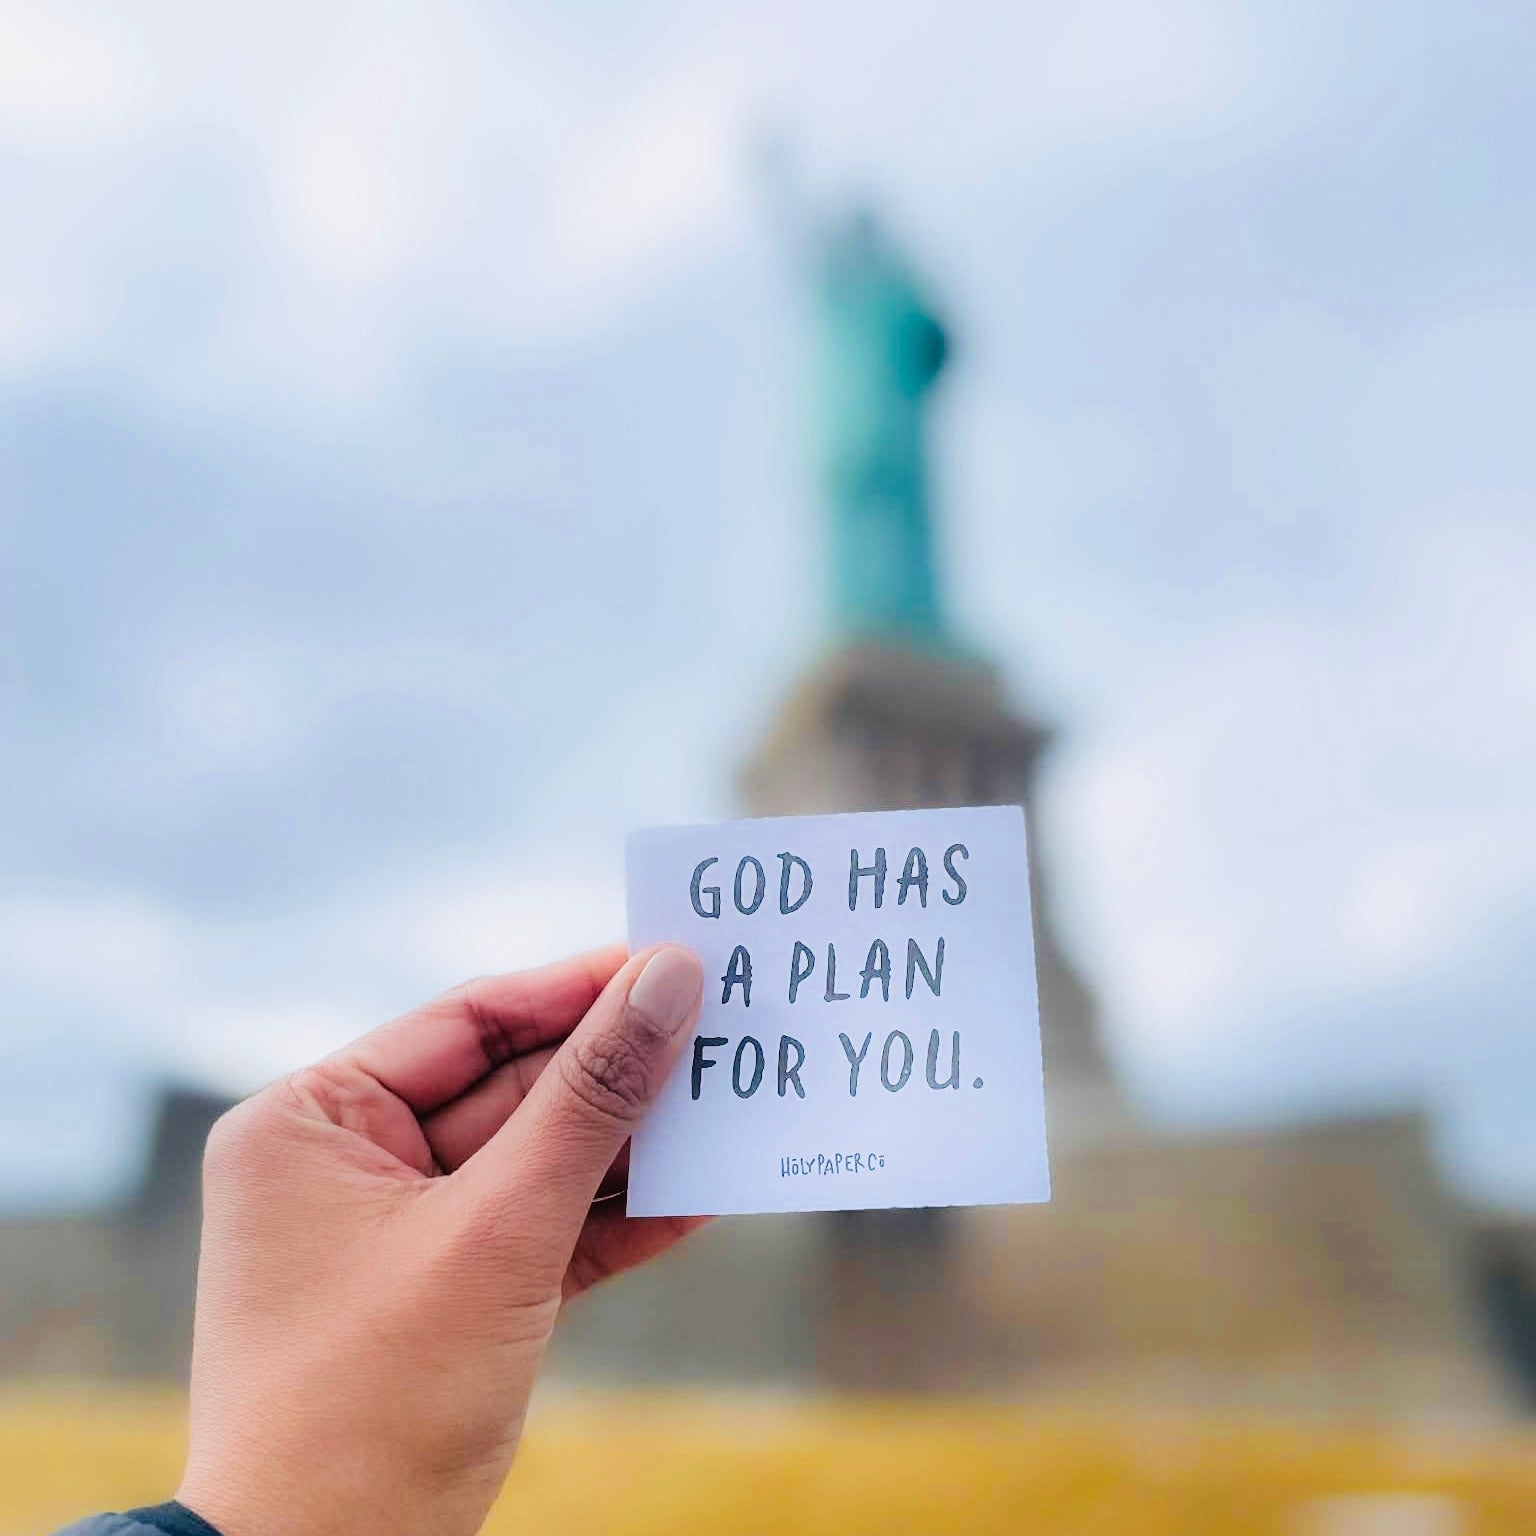 GOD HAS
A PLAN
FOR YOU.
HōLYPAPERCō